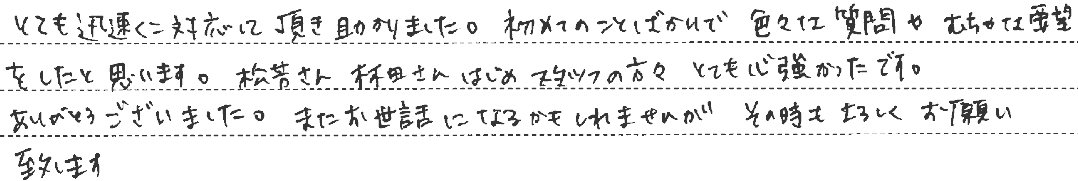 とても迅速に対応して頂き助かりました。初めてのことばかりで 色々な質問や むちゃな要望
をしたと思います。松芳さん 林田さん はじめ スタッフの方々 とても心強かったです。
ありがとうございました。またお世話になるかもしれませんが その時もよろしく お願い
致します